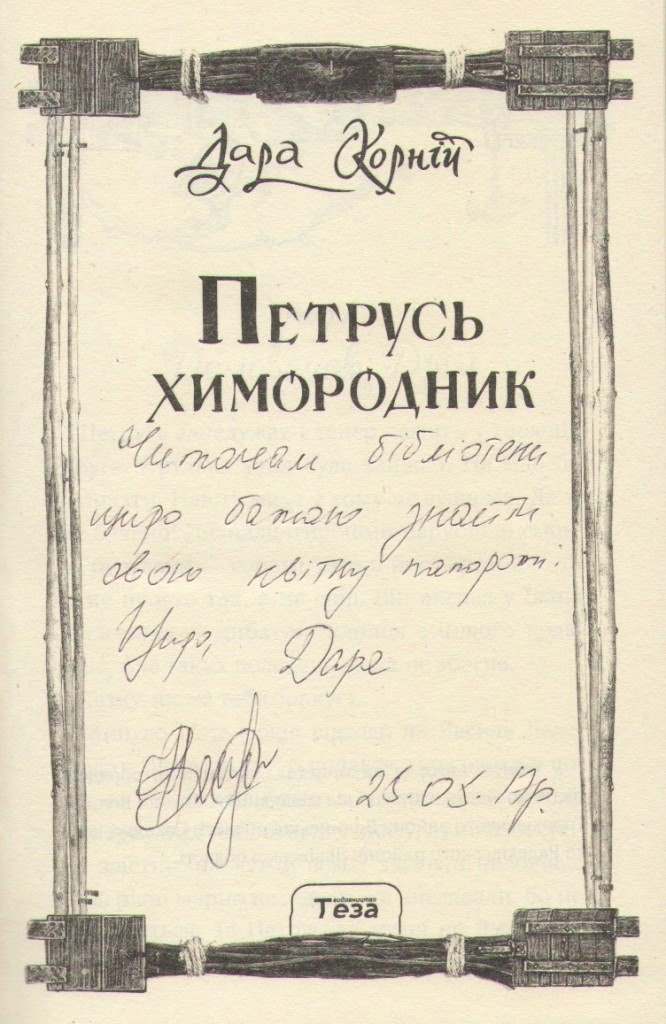 Дара Корній
Петрусь
химородник
Читачам бібліотеки
щиро бажаю знайти
свою квітку папороті.
Щиро, Дара
25.05.17р.
видавництво
Теза